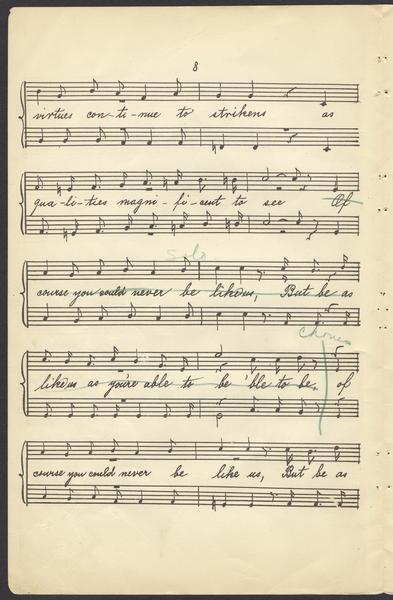 8
virtues con-ti-nue to strikens as
qua-li-ties magni-fi-cent to see Of
Solo
course you could never be like us, But be as
Chorus
like us as you're able to be 'ble to be. of
course you could never be like us, But be as